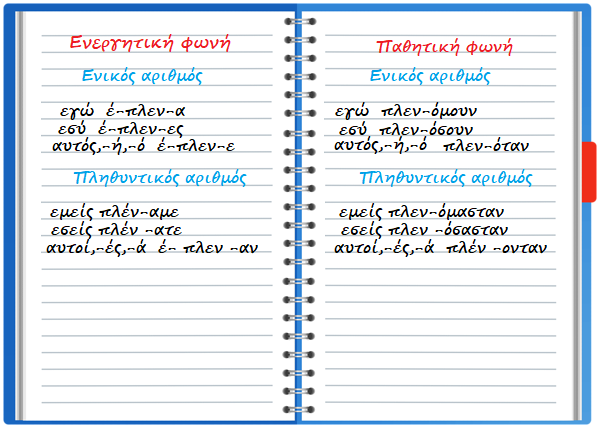 Ενεργητική φωνή
Ενικός αριθμός
εγώ έ-πλεν-α
εσύ έ-πλεν-ες
αυτός,-ή,-ό έ-πλεν-ε
Πληθυντικός αριθμός
εμείς πλέν-αμε
εσείς πλέν -ατε
αυτοί,-ές,-ά έ- πλεν -αν
Παθητική φωνή
Ενικός αριθμός
εγώ πλεν-όμουν
εσύ πλεν-όσουν
αυτός,-ή,-ό πλεν-όταν
Πληθυντικός αριθμός
εμείς πλεν-όμασταν
εσείς πλεν -όσασταν
αυτοί,-ές,-ά πλέν -ονταν